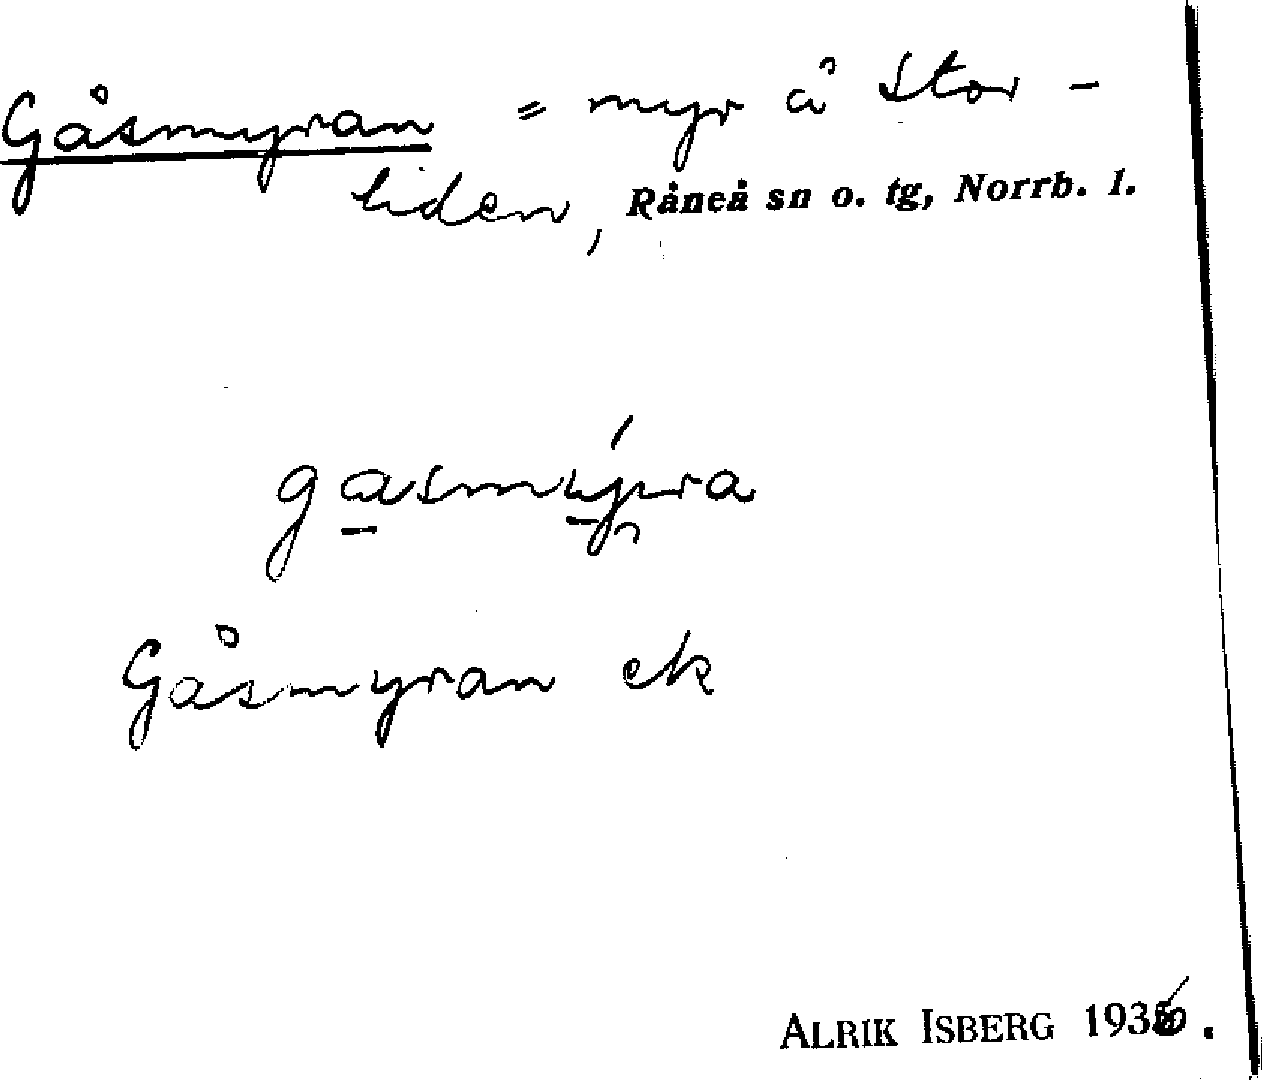 Gåsmyran = myr å Stor-
liden, Råneå sn o. tg, Norrb. l.
gasmýra
Gåsmyran ek
ALRIK ISBERG 1936.